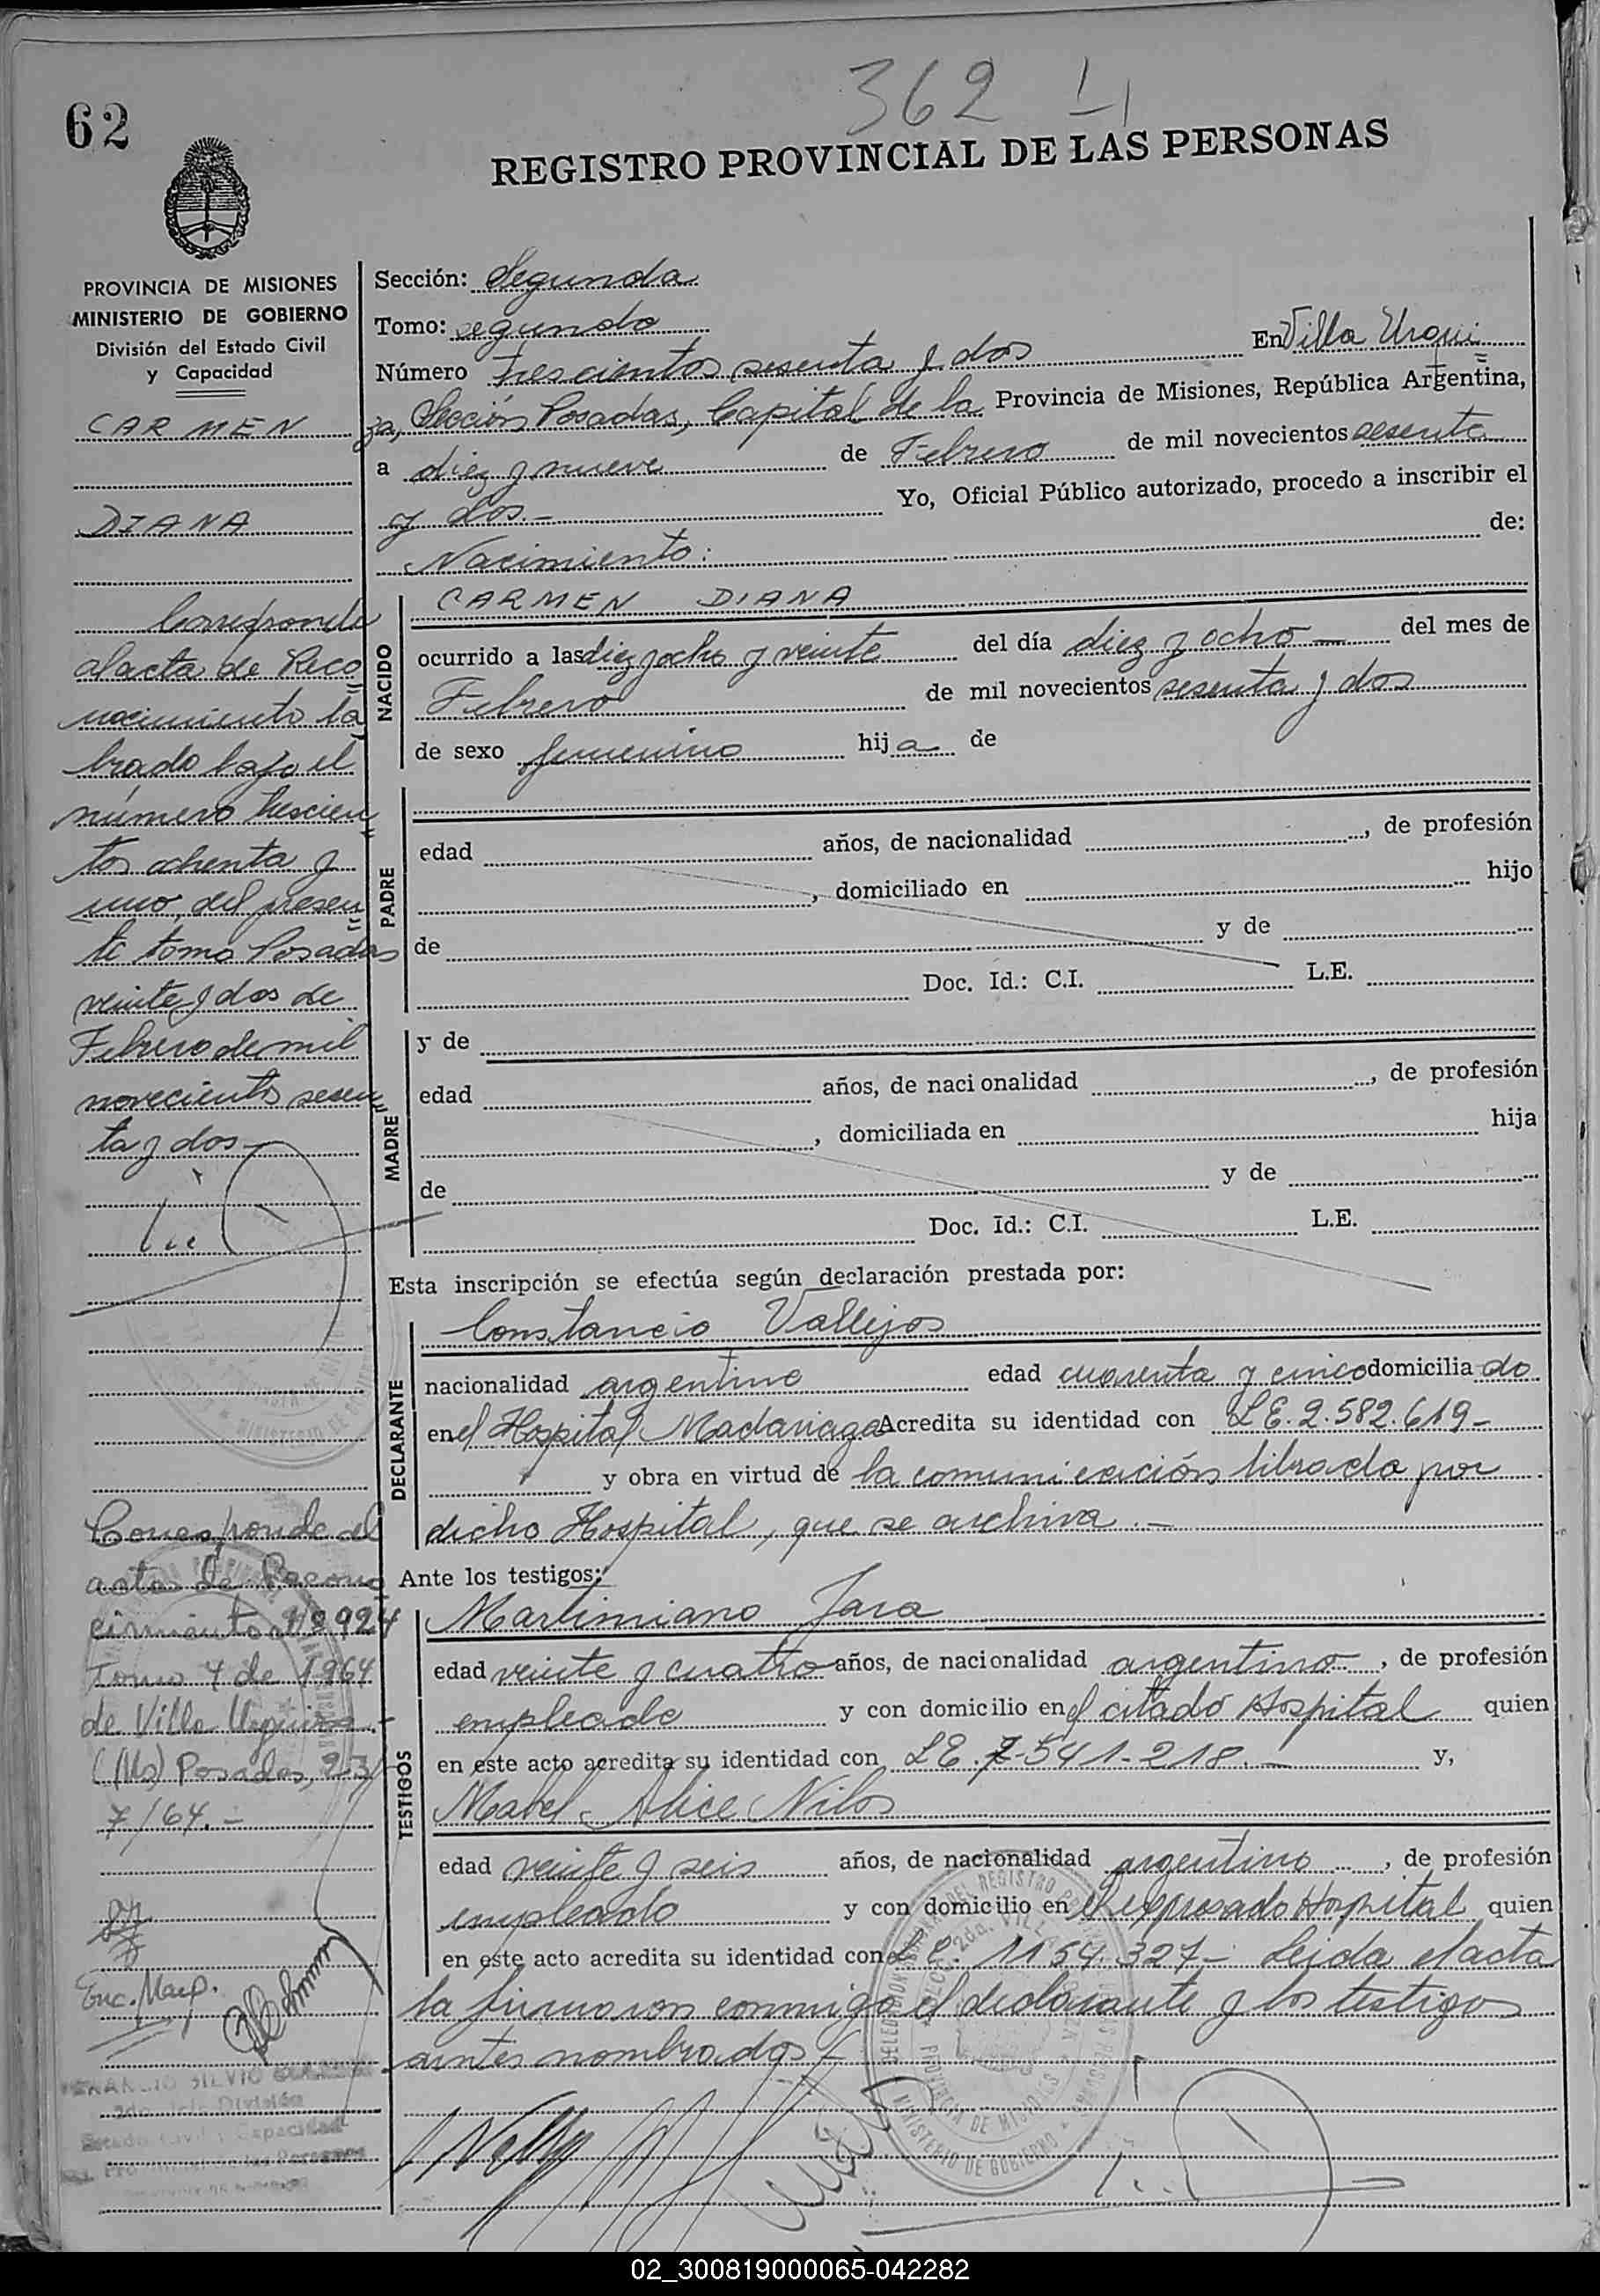 362 L1
62
REGISTRO PROVINCIAL DE LAS PERSONAS
PROVINCIA DE MISIONES
MINISTERIO DE GOBIERNO
División del Estado Civil
y Capacidad
CARMEN
DIANA
Corresponde
al acta de Reco
nocimiento la
brado bajo el
número trescien
tos ochenta y
uno, del presen
te tomo Posadas
veinte y dos de
Febrero de mil
novecientos sesen
ta y dos
Corresponde al
acta de Recono
cimiento nº 924
Tomo 4 de 1964
de Villa Urquiza.-
(Ms) Posadas, 23/
7/64.-
Enc. Marg.
Sección: Segunda
Tomo: segundo
Número trescientos sesenta y dos En Villa Urqui
za, Sección Posadas, Capital de la Provincia de Misiones, República Argentina,
a diez y nueve de Febrero de mil novecientos sesenta
y dos.- Yo, Oficial Público autorizado, procedo a inscribir el
Nacimiento: de:
NACIDO
CARMEN DIANA
ocurrido a las diez y ocho y veinte del día diez y ocho del mes de
Febrero de mil novecientos sesenta y dos
de sexo femenino hija de
PADRE
edad años, de nacionalidad , de profesión
, domiciliado en hijo
de y de
Doc. Id.: C.I. L.E.
MADRE
y de
edad años, de nacionalidad , de profesión
, domiciliada en hija
de y de
Doc. Id.: C.I. L.E.
Esta inscripción se efectúa según declaración prestada por:
DECLARANTE
Constancio Vallejos
nacionalidad argentino edad cuarenta y cinco domiciliado
en el Hospital Madariaga Acredita su identidad con L.E. 2.582.619-
y obra en virtud de la comunicación librada por
dicho Hospital, que se archiva.-
Ante los testigos:
TESTIGOS
Martimiano Jara
edad veinte y cuatro años, de nacionalidad argentino, de profesión
empleado y con domicilio en el citado Hospital quien
en este acto acredita su identidad con L.E. 7-541-218.- y,
Mabel Alice Nilos
edad veinte y seis años, de nacionalidad argentino, de profesión
empleado y con domicilio en el expresado Hospital quien
en este acto acredita su identidad con 1154.327- Leida el acta
la firmaron conmigo el declarante y los testigos
antes nombrados
02_300819000065-042282